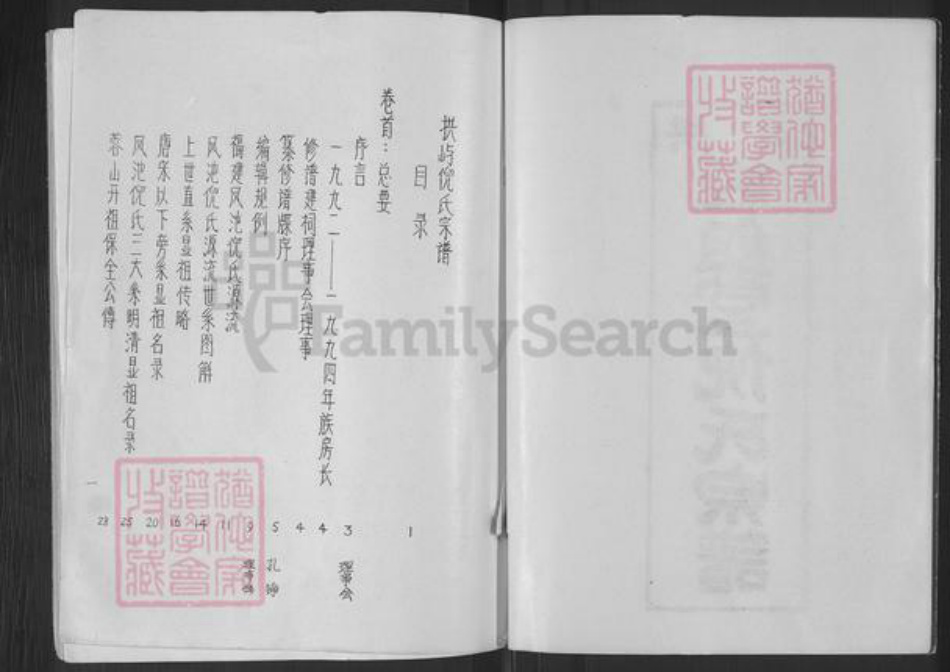 拱屿倪氏宗谱
目录
卷首：总要 1
序言 3 理事会
一九九二——一九九四年族房长 4
修谱建祠理事会理事 4
纂修谱牒序 5
编辑规例 9 理事会
福建凤池倪氏源流 11
凤池倪氏源流世系图解 14
上世直系显祖传略 16
唐宋以下旁系显祖名录 20
凤池倪氏三大系明清显祖名录 25
苍山开祖保全公傳 28
一
FamilySearch